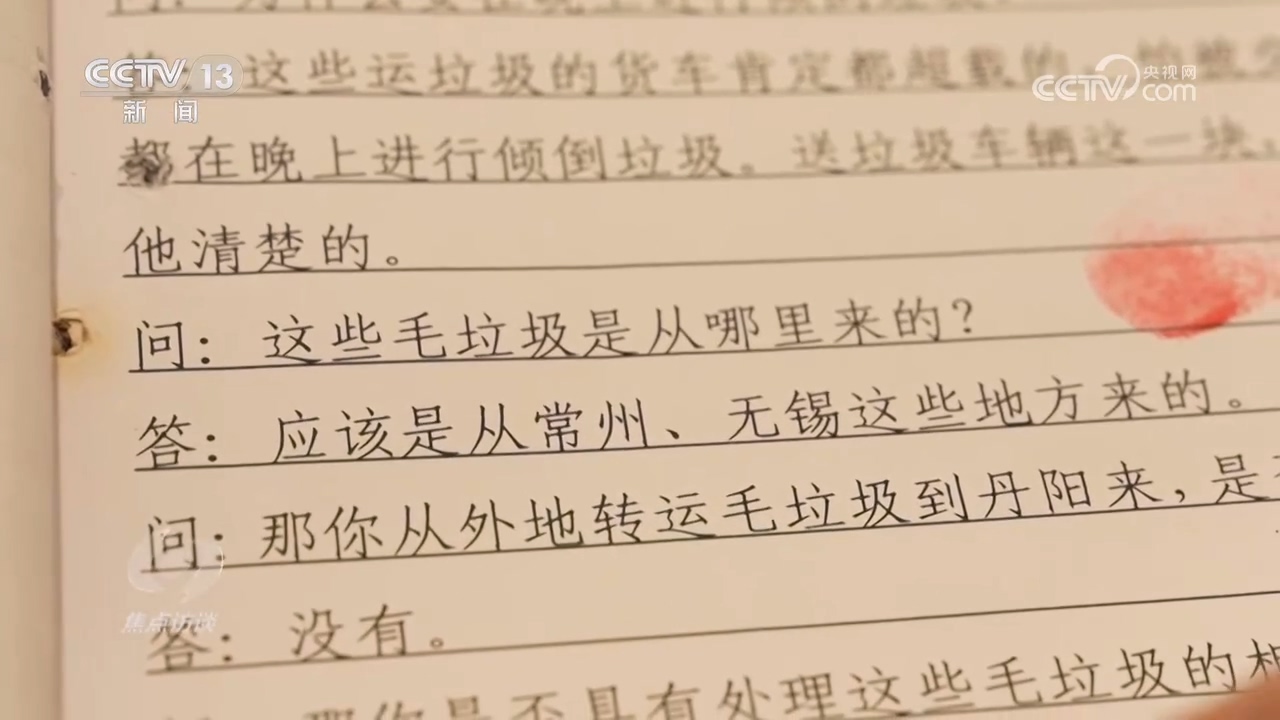 CCTV 13
新闻
央视网
CCTV com
答：这些运垃圾的货车肯定都超载的，怕被
都在晚上进行倾倒垃圾。送垃圾车辆这一块，
他清楚的。
问：这些毛垃圾是从哪里来的？
答：应该是从常州、无锡这些地方来的。
问：那你从外地转运毛垃圾到丹阳来，是
答：没有。
焦点访谈
那你是否具有处理这些毛垃圾的相